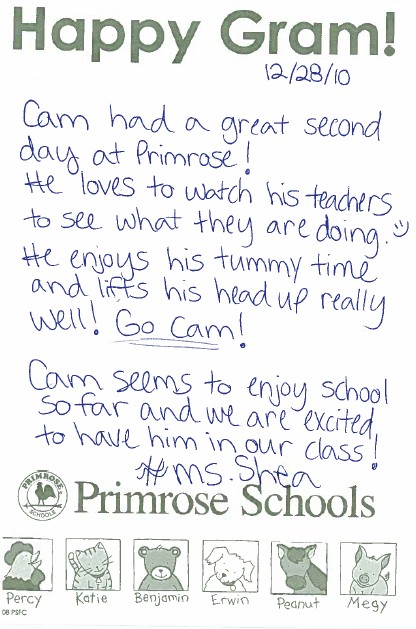 Happy Gram!
12/28/10
Cam had a great second
day at Primrose!
He loves to watch his teachers
to see what they are doing. :)
He enjoys his tummy time
and lifts his head up really
well! Go Cam!
Cam seems to enjoy school
so far and we are excited
to have him in our class!
Ms. Shea
PRIMROSE
SCHOOLS
Primrose Schools
Percy Katie Benjamin Erwin Peanut Megy
08 PSFC